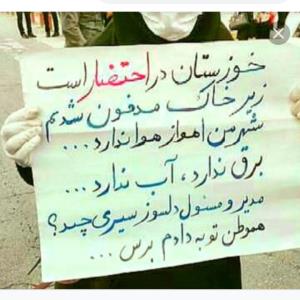 خوزستان در احتضار است
زیر خاک مدفون شدیم
شهر من اهواز هوا ندارد ...
برق ندارد ، آب ندارد ...
مدیر و مسئول دلسوز سیری چند ؟
هموطن تو به دادم برس ...